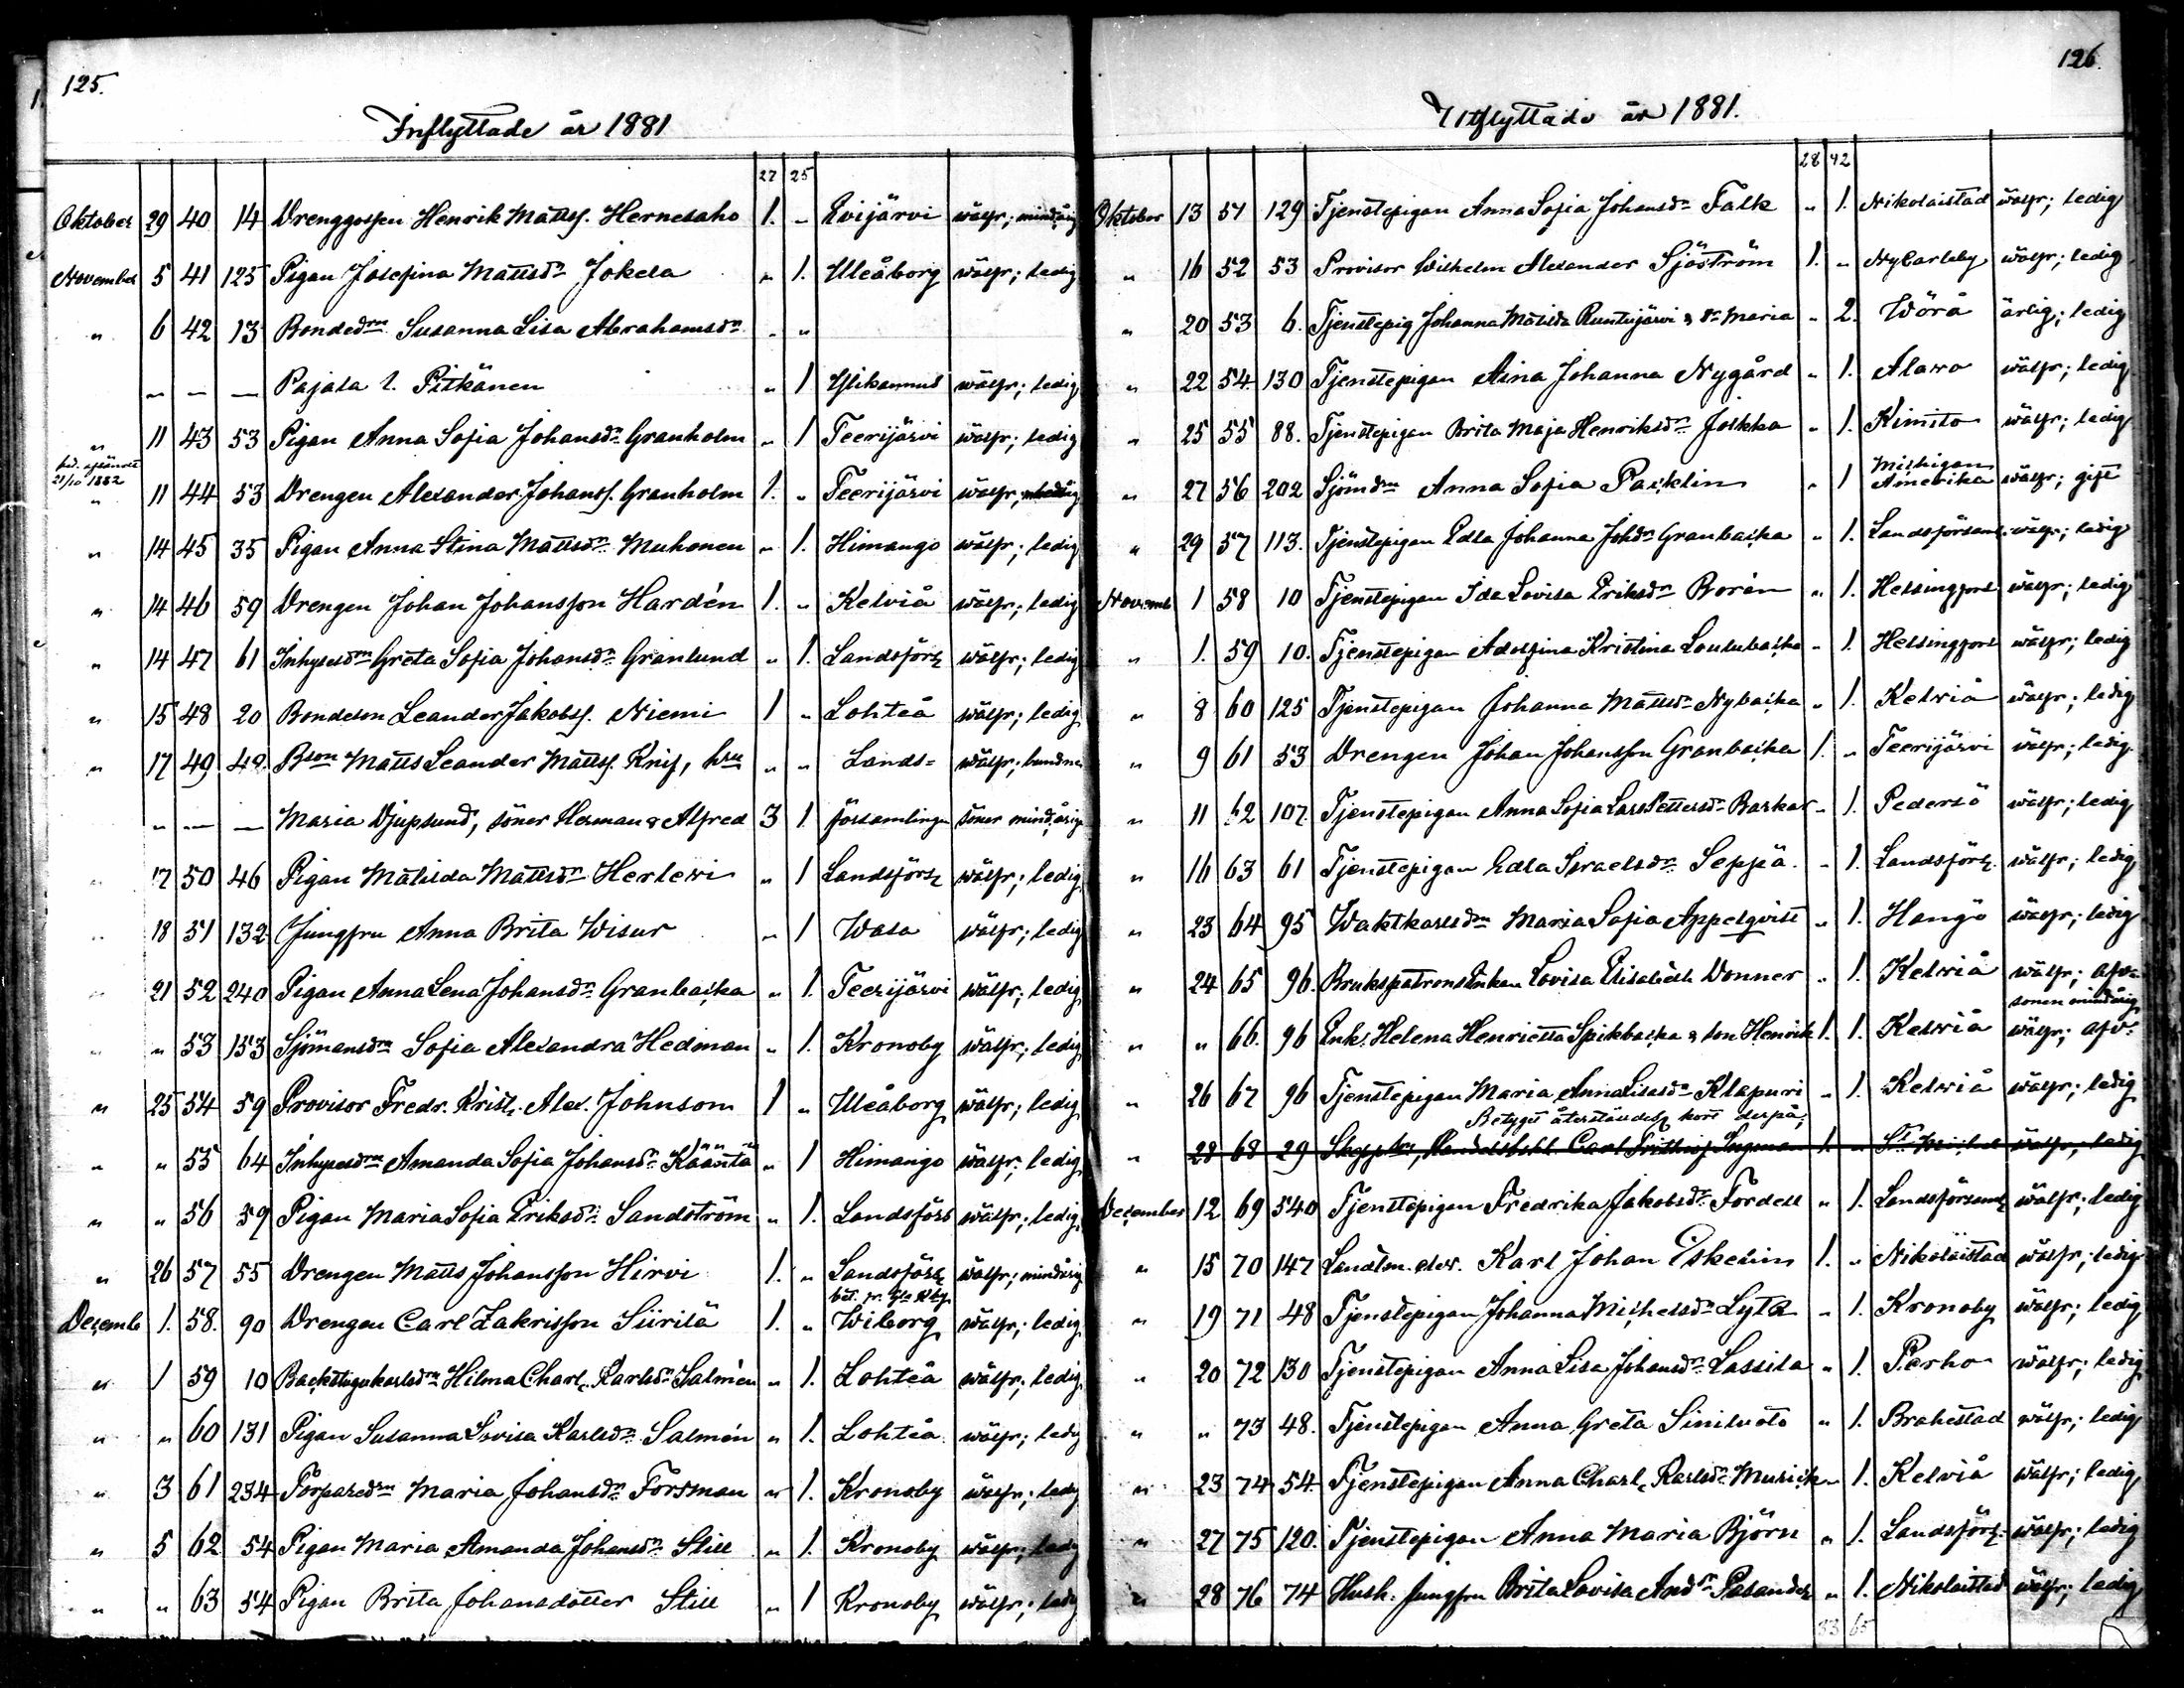 125.
Inflyttade år 1881
27 25
Oktober 29 40 14 Drenggossen Henrik Mattss. Hernesaho 1. - Evijärvi wälfr; mindårig
November 5 41 125 Pigan Josefina Mattsdr Jokela " 1. Uleåborg wälfr; ledig
" 6 42 13 Bondedrn Susanna Lisa Abrahamsdr " "
" — — Pajala l. Pitkänen " 1 Ylikannus wälfr; ledig
" 11 43 53 Pigan Anna Sofia Johansdr Granholm " 1 Teerijärvi wälfr; ledig
21/10 1882
" 11 44 53 Drengen Alexander Johanss. Granholm 1. " Teerijärvi wälfr;
" 14 45 35 Pigan Anna Stina Mattsdr Muhonen " 1. Himango wälfr; ledig
" 14 46 59 Drengen Johan Johansson Hardén 1. " Kelviå wälfr; ledig
" 14 47 61 Inhysesdrn Greta Sofia Johansdr Granlund " 1. Landsförs wälfr; ledig
" 15 48 20 Bondeson Leander Jakobss. Niemi 1 " Lohteå wälfr; ledig
" 17 49 49 Bson Matts Leander Mattss. Knif, hru " " Lands= wälfr; bundna
" — — Maria Djupsund, söner Herman & Alfred 3 1. församlingen söner mindårige
" 17 50 46 Pigan Matilda Mattsdr Herlevi " 1 Landsförs wälfr; ledig
" 18 51 132 Jungfru Anna Brita Wisur " 1 Wasa wälfr; ledig
" 21 52 240 Pigan Anna Lena Johansdr Granbacka " 1. Teerijärvi wälfr; ledig
" " 53 153 Sjömansdrn Sofia Alexandra Hedman " 1. Kronoby wälfr; ledig
" 25 54 59 Provisor Fredr. Krist. Alex. Johnsson 1 " Uleåborg wälfr; ledig
" " 55 64 Inhysesdrn Amanda Sofia Johansdr Kääntä " 1 Himango wälfr; ledig
" " 56 59 Pigan Maria Sofia Eriksdr Sandström " 1. Landsförs wälfr; ledig
" 26 57 55 Drengen Matts Johansson Hirvi 1. " Landsförs wälfr; mindårig
Decemb 1. 58. 90 Drengen Carl Zakrisson Siirilä 1. " Wiborg wälfr; ledig
" 1 59 10 Backstugukarlsdrn Hilma Charl. Karlsdr Salmén " 1. Lohteå wälfr; ledig
" " 60 131 Pigan Susanna Lovisa Karlsdr Salmén " 1. Lohteå wälfr; ledig
" 3 61 234 Torparedrn Maria Johansdr Forsman " 1. Kronoby wälfr; ledig
" 5 62 54 Pigan Maria Amanda Johansdr Still " 1. Kronoby wälfr; ledig
" " 63 54 Pigan Brita Johansdotter Still " 1 Kronoby wälfr; ledig
126.
Utflyttade år 1881.
28 42
Oktober 13 51 129 Tjenstepigan Anna Sofia Johansdr Falk " 1. Nikolaistad wälfr; ledig
" 16 52 53 Provisor Wilhelm Alexander Sjöström 1. " NyCarleby wälfr; ledig
" 20 53 6. Tjenstepig Johanna Matilda Runtujärvi & dr Maria " 2. Wörå ärlig; ledig
" 22 54. 130 Tjenstepigan Aina Johanna Nygård " 1. Alavo wälfr; ledig
" 25 55 88. Tjenstepigan Brita Maja Henriksdr Jolkka " 1. Kimito wälfr; ledig
" 27 56 202 Sjömdrn Anna Sofia Packlin " 1 Michigan Amerika wälfr; gift
" 29 57 113. Tjenstepigan Edla Johanna Johdr Granbacka " 1. Landsförsaml. wälfr; ledig
Novemb 1 58 10 Tjenstepigan Ida Lovisa Eriksdr Borén " 1. Helsingfors wälfr; ledig
" 1. 59 10. Tjenstepigan Adolfina Kristina Loulubacka " 1. Helsingfors wälfr; ledig
" 8 60 125 Tjenstepigan Johanna Mattsdr Nybacka " 1. Kelviå wälfr; ledig
" 9 61 53 Drengen Johan Johansson Granbacka 1. " Teerijärvi wälfr; ledig
" 11 62 107. Tjenstepigan Anna Sofia Lars Pettersdr Barkar " 1. Pedersö wälfr; ledig
" 16 63 61 Tjenstepigan Edla Israelsdr Seppä " 1. Landsförs. wälfr; ledig
" 23 64 95 Waktkarlsdrn Maria Sofia Appelqvist " 1. Hangö wälfr; ledig
" 24 65 96. Brukspatrons Enkan Lovisa Elisabeth Donner " 1. Kelviå wälfr;
sonen mindårig
" " 66. 96 Enk. Helena Henrietta Spikbacka & son Henrik 1. 1. Kelviå wälfr;
" 26 67 96 Tjenstepigan Maria Anna Lisasdr Klapuri " 1. Kelviå wälfr; ledig
Betyget återställdes
" 28 68 29 Carl wälfr; ledig
December 12 69 540 Tjenstepigan Fredrika Jakobsdr Fordell " 1. Landsförsaml wälfr; ledig
" 15 70 147 Landtm. elev. Karl Johan Eskelin 1. " Nikolaistad wälfr; ledig
" 19 71 48 Tjenstepigan Johanna Michelsdr Lytz " 1. Kronoby wälfr; ledig
" 20 72 130 Tjenstepigan Anna Lisa Johansdr Lassila " 1. Perho wälfr; ledig
" " 73 48. Tjenstepigan Anna Greta Siniluoto " 1. Brahestad wälfr; ledig
" 23 74 54. Tjenstepigan Anna Charl. Karlsdr Murick " 1. Kelviå wälfr; ledig
" 27 75 120. Tjenstepigan Anna Maria Björn " 1. Landsförs. wälfr; ledig
" 28 76 74 Hush. Jungfru Brita Lovisa Anddr Pasander " 1. Nikolaistad wälfr; ledig
33 65